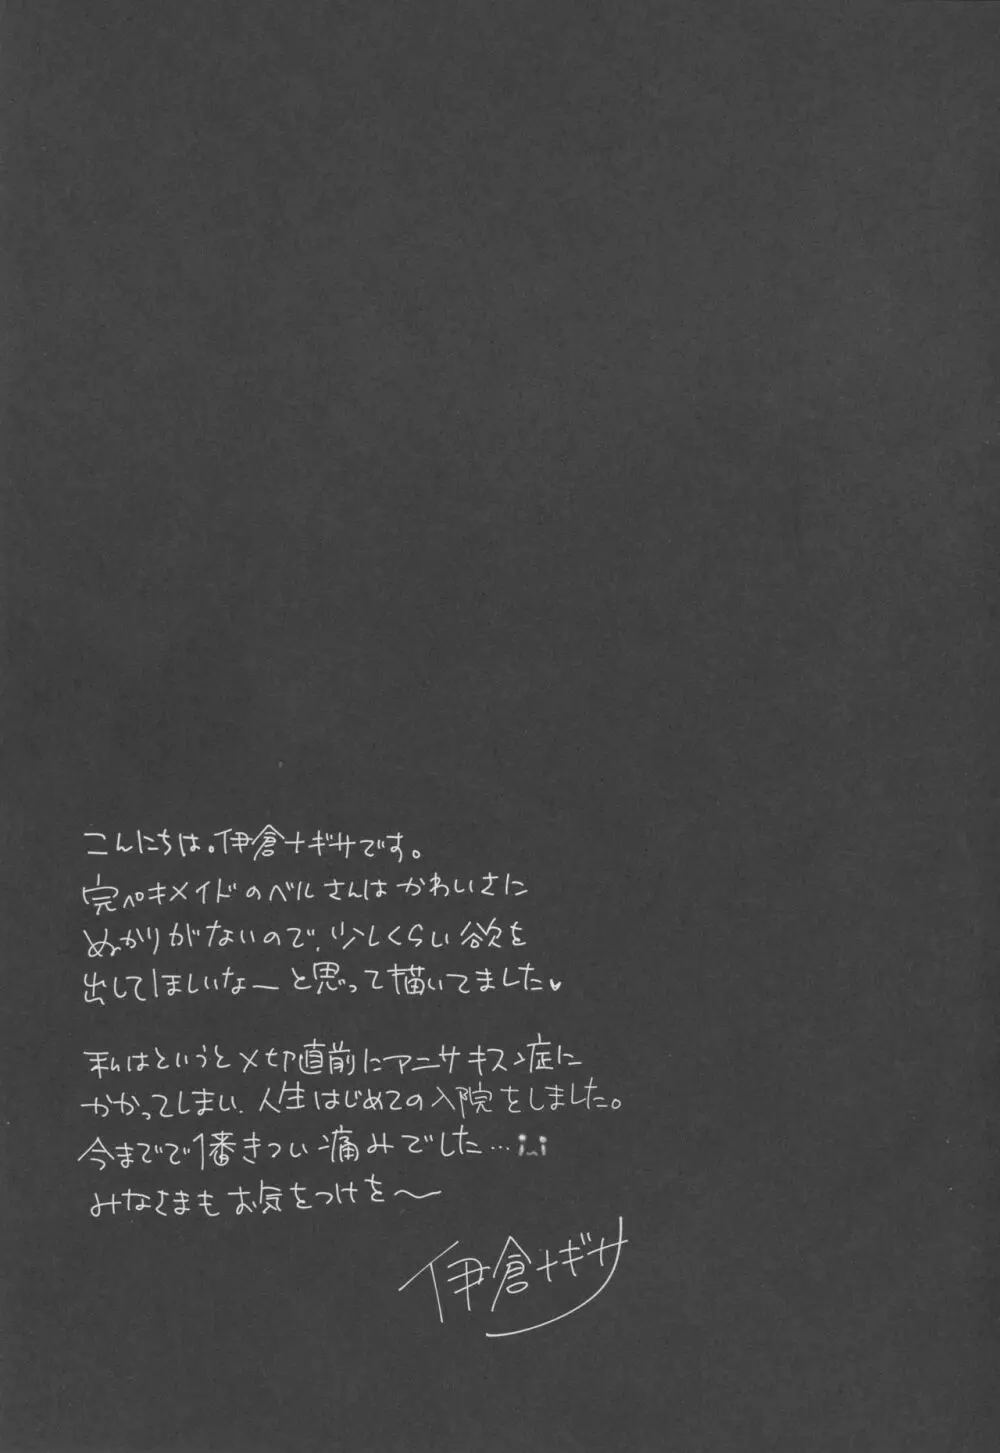 こんにちは。伊倉ナギサです。
完ペキメイドのベルさんはかわいさに
ぬかりがないので、少しくらい欲を
出してほしいなーと思って描いてました♥
私はというと〆切直前にアニサキス症に
かかってしまい、人生はじめての入院をしました。
今までで1番きつい痛みでした…;_;
みなさまもお気をつけを〜
伊倉ナギサ